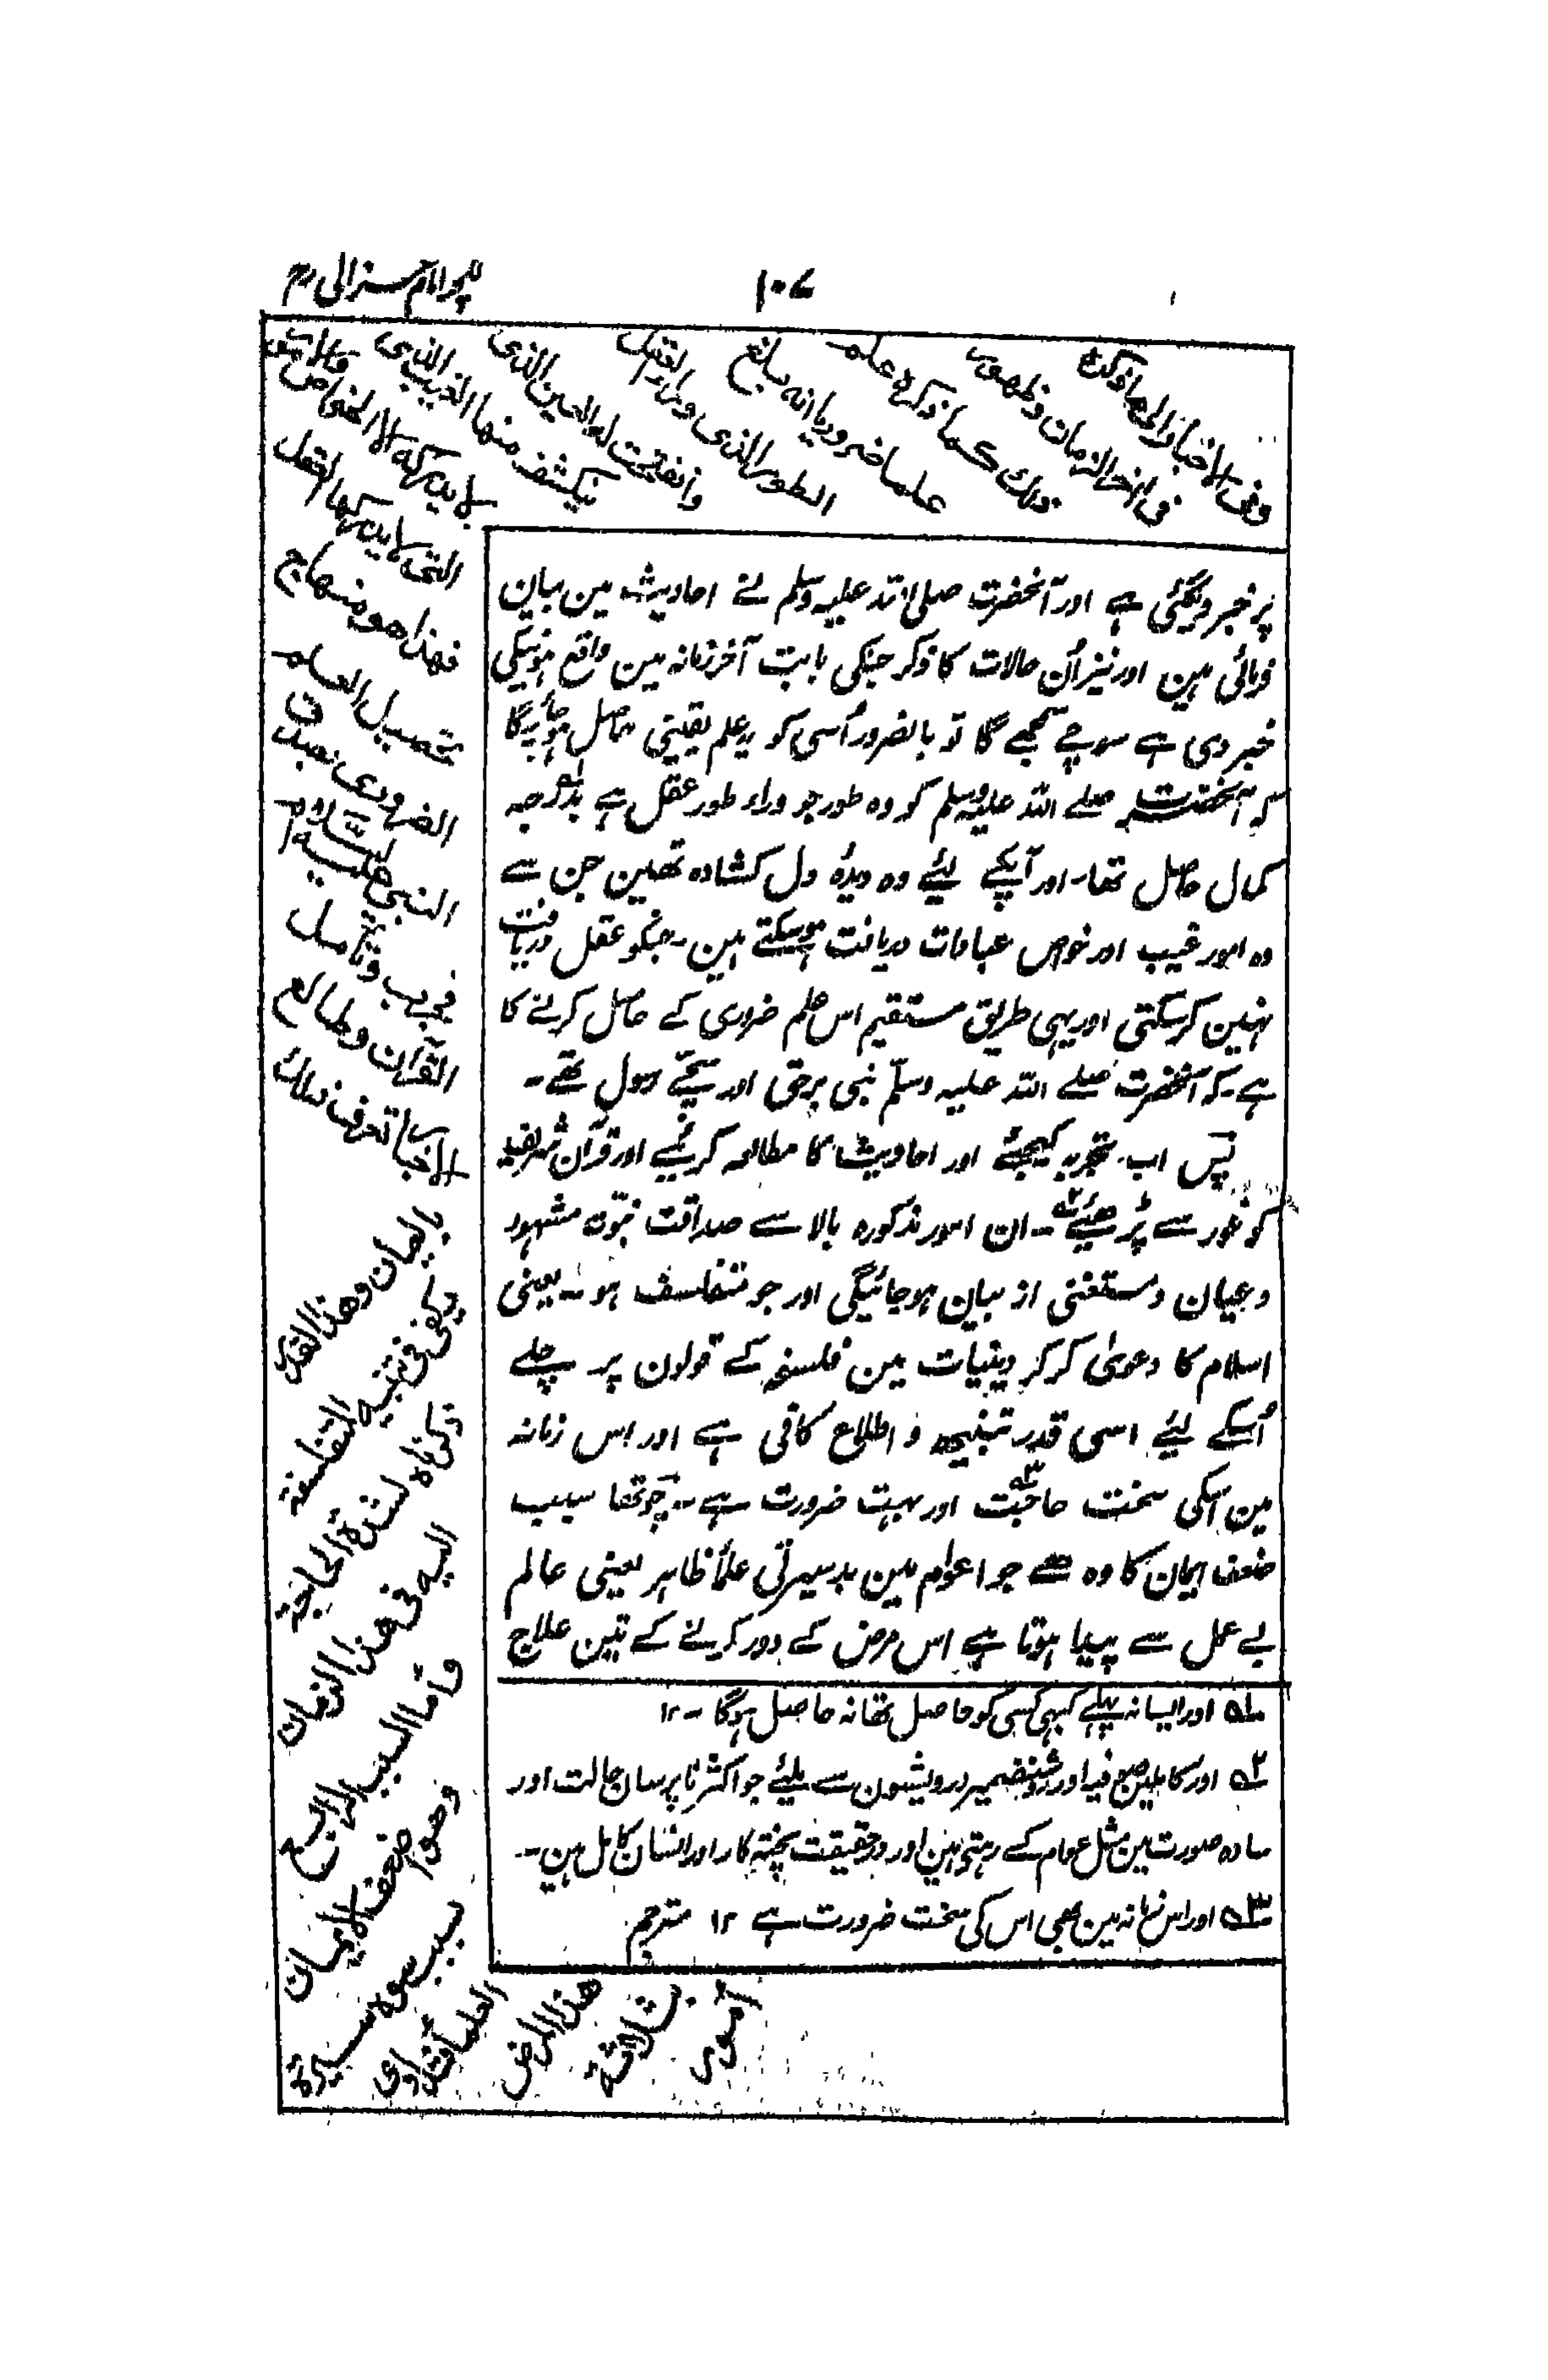 ۱۰۷
وفی الاخبار الی ما ذکرہ
فی آخر الزمان وظهور
ذلك كما ذكره علم
علما ضروریا انه بلغ
الطور الذی وراء العقل
وانفتحت له العین الذی
ینکشف منها الغیب الذی
لا یدرکه الا الخواص والامور
التی لا یدرکها العقل
فهذا هو منهاج
تحصیل العلم
الضروری بصدق
النبی علیه السلام
فجرب وتأمل
القرآن وطالع
الاخبار تعرف ذلك
بالعیان وهذا القدر
یکفی فی تنبیه المتفلسفة
ذکرناه لشدة الحاجة
الیه فی هذا الزمان
واما السبب الرابع
وهو ضعف الایمان
بسبب سوء سیرة
العلماء فیداوی
هذا المرض
بثلاثة
امور
پر خبر دیگئی ہے اور آنحضرت صلی اللہ علیہ وسلم نے احادیث مین بیان
فرمائی ہین اور نیز اُن حالات کا ذکر جنکی بابت آخر زمانہ مین واقع ہونیکی
خبر دی ہے سوچے سمجھے گا تو بالضرور اُسی کو یہ علم یقینی حاصل ہو جائیگا
کہ آنحضرت صلے اللہ علیہ وسلم کو وہ طور جو وراء طور عقل ہے بدرجہ
کمال حاصل تھا۔ اور آپکے لیئے وہ دیدۂ دل کشادہ تھین جن سے
وہ امور غیب اور خواص عبادات دریافت ہو سکتے ہین۔ جنکو عقل دریافت
نہین کر سکتی اور یہی طریق مستقیم اس علم ضروری کے حاصل کرنے کا
ہے۔ کہ آنحضرت صلے اللہ علیہ وسلم نبی برحق اور سچے رسول تھے۔
پس اب تجربہ کیجئے اور احادیث کا مطالعہ کریئے اور قرآن شریف
کو غور سے پڑھیئے ۲؎ ۔ ان امور مذکورہ بالا سے صداقت نبوۃ مشہود
و عیان و مستغنی از بیان ہو جائیگی اور جو متفلسف ہو۔ یعنی
اسلام کا دعویٰ کر کر دینیات مین فلسفہ کے قولون پر چلے
اُسکے لیئے اسی قدر تنبیہ و اطلاع کافی ہے اور اس زمانہ
مین اسکی سخت حاجت ۳؎ اور بہت ضرورت ہے۔ چوتھا سبب
ضعف ایمان کا وہ ہے جو اعوام مین بدسیرتی علماً ظاہر یعنی عالم
بے عمل سے پیدا ہوتا ہے اس مرض کے دور کرنے کے تین علاج
۱؎ اور ایسا نہ پہلے کبہی کسی کو حاصل تھا نہ حاصل ہوگا ۔ ۱۲
۲؎ اور کاملین اور روشنضمیر درویشون سے ملیئے جو اکثر حالت اور
سادہ صورت مین مثل عوام کے رہتے ہین اور درحقیقت پختہ کار اور انسان کامل ہین۔
۳؎ اور اس زمانہ مین بھی اس کی سخت ضرورت ہے ۱۲ مترجم